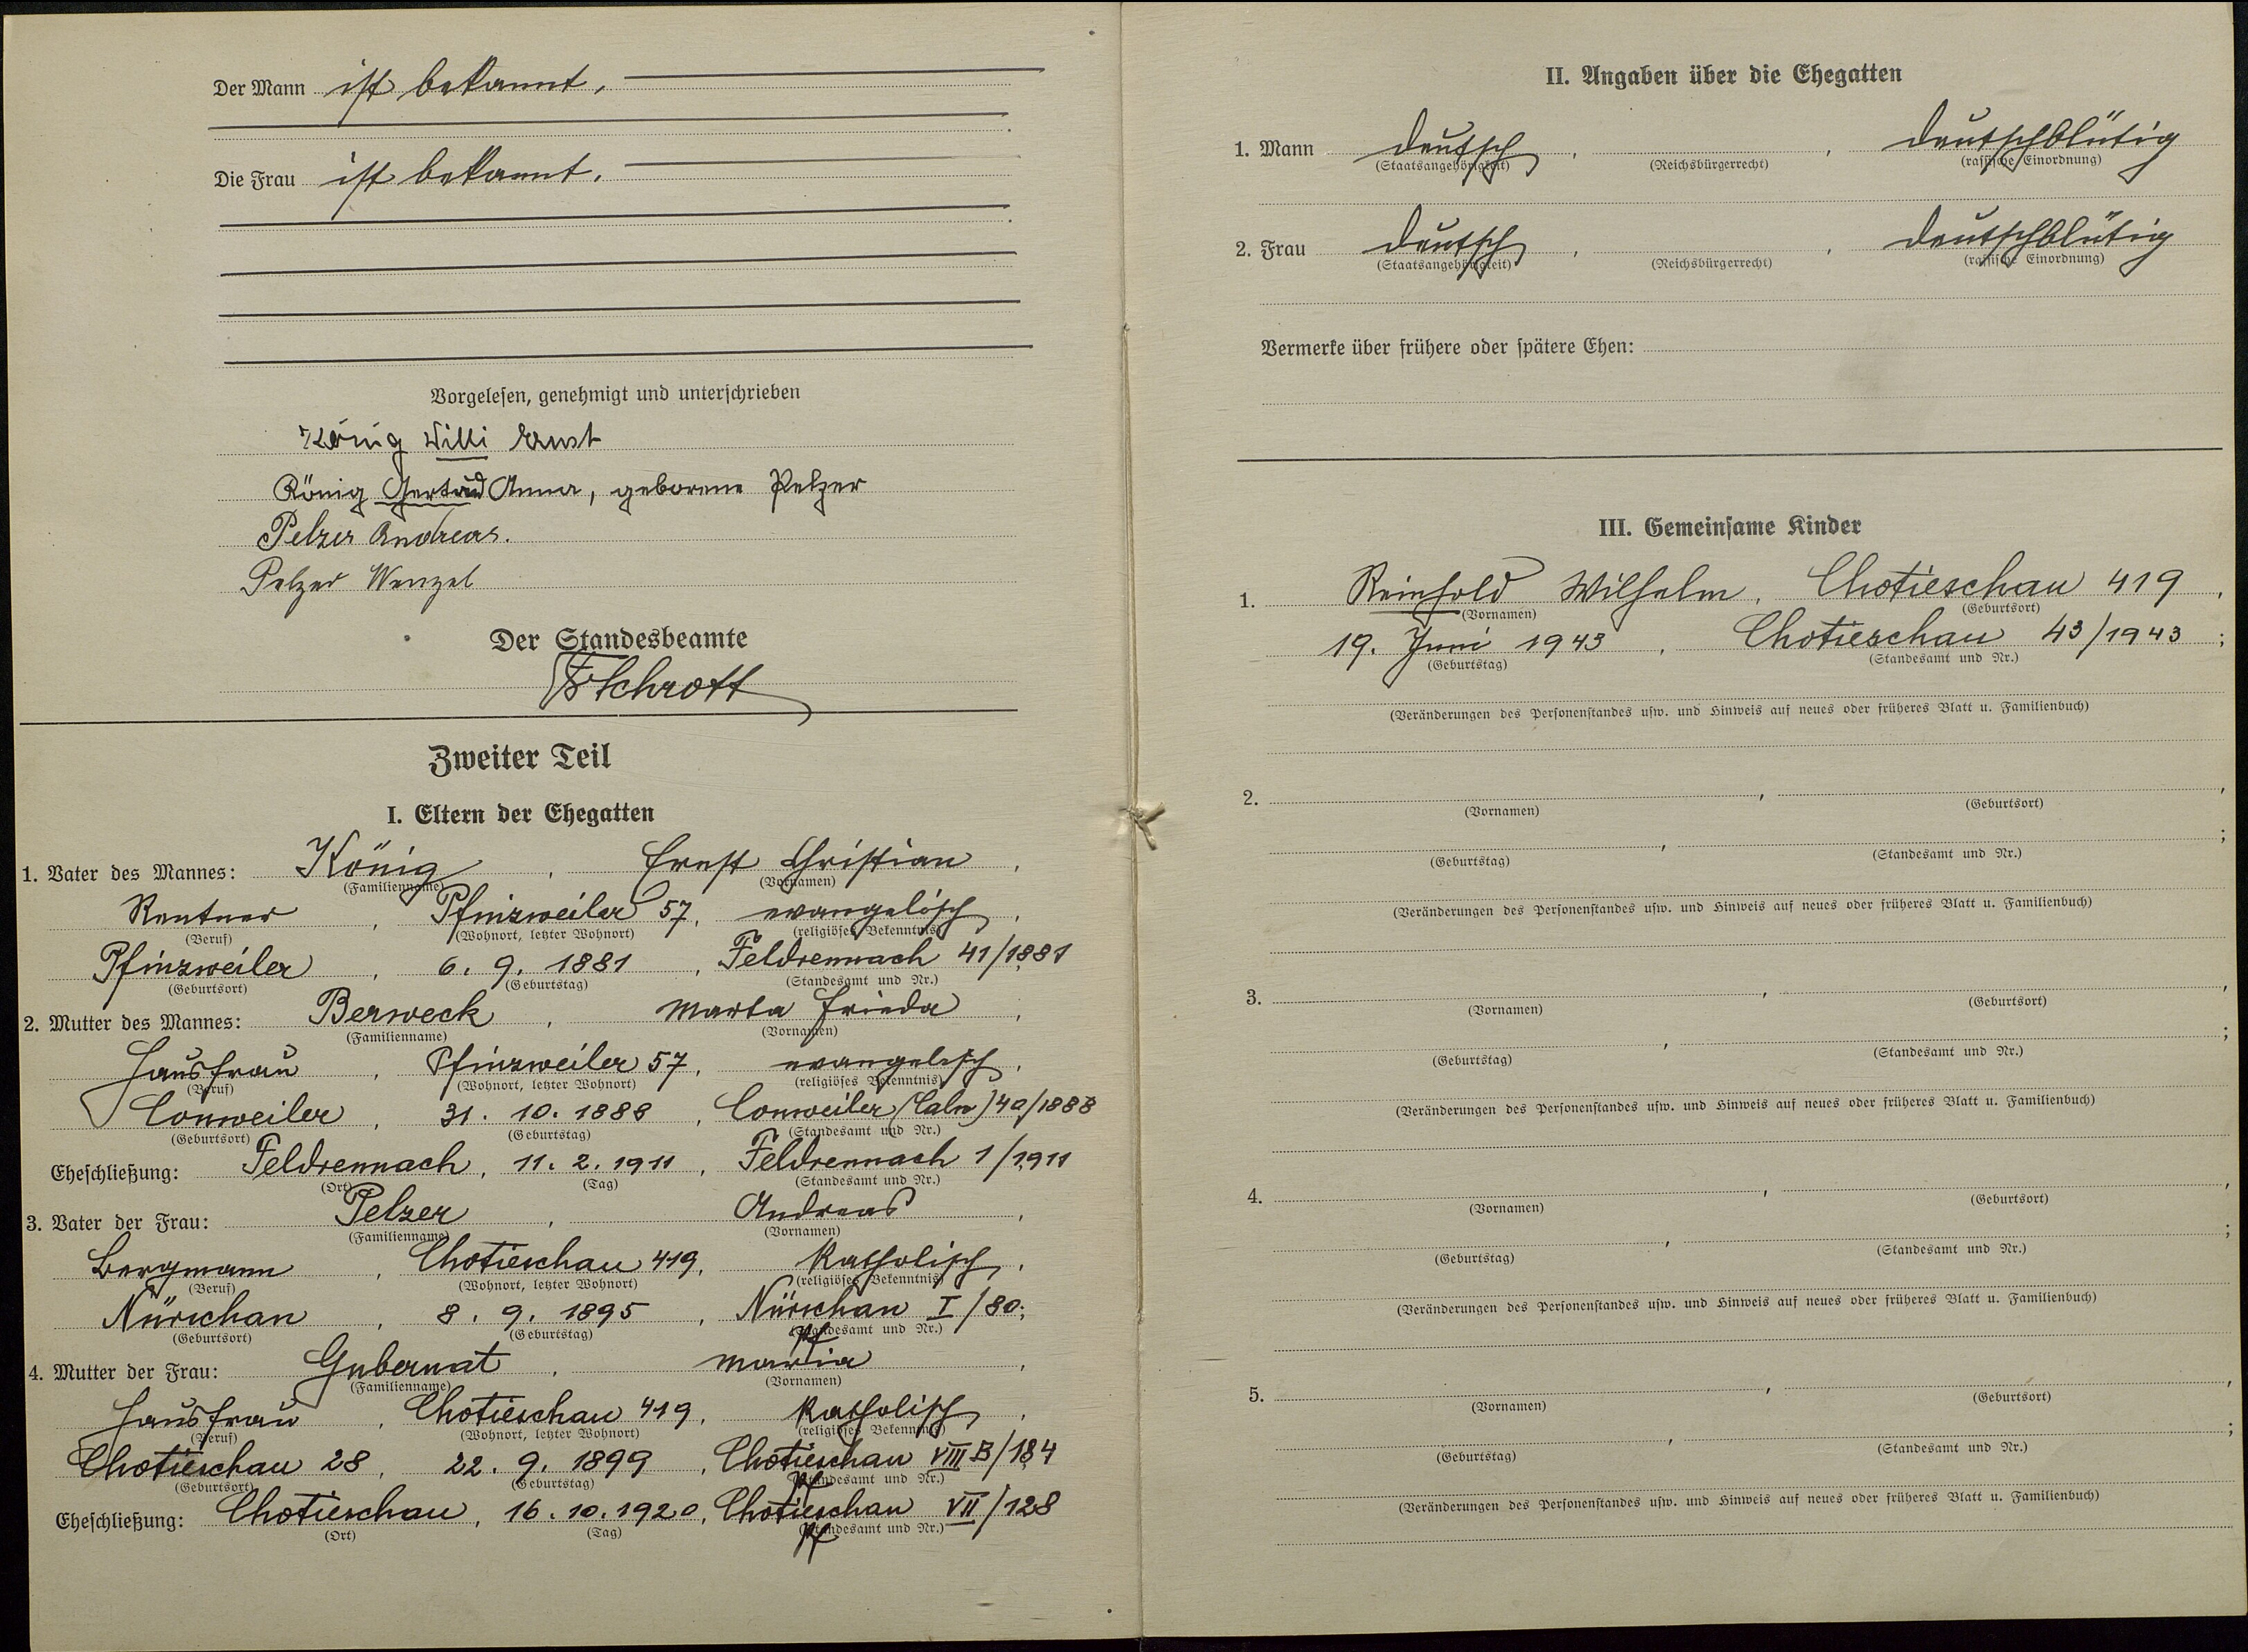 Der Mann ist bekannt.
Die Frau ist bekannt.
Vorgelesen, genehmigt und unterschrieben
König Willi Ernst
König Gertrud Anna, geborene Pelzer
Pelzer Andreas.
Pelzer Wenzel
Der Standesbeamte
Schrott
Zweiter Teil
I. Eltern der Ehegatten
1. Vater des Mannes: König, Ernst Christian,
(Familienname) (Vornamen)
Rentner, Pfinzweiler 57, evangelisch,
(Beruf) (Wohnort, letzter Wohnort) (religiöses Bekenntnis)
Pfinzweiler, 6. 9. 1881, Feldrennach 41/1881
(Geburtsort) (Geburtstag) (Standesamt und Nr.)
2. Mutter des Mannes: Berweck, Marta Frieda,
(Familienname) (Vornamen)
Hausfrau, Pfinzweiler 57, evangelisch,
(Beruf) (Wohnort, letzter Wohnort) (religiöses Bekenntnis)
Conweiler, 31. 10. 1888, Conweiler (Calw) 40/1888
(Geburtsort) (Geburtstag) (Standesamt und Nr.)
Eheschließung: Feldrennach, 11. 2. 1911, Feldrennach 1/1911
(Ort) (Tag) (Standesamt und Nr.)
3. Vater der Frau: Pelzer, Andreas,
(Familienname) (Vornamen)
Bergmann, Chotieschau 419, katholisch,
(Beruf) (Wohnort, letzter Wohnort) (religiöses Bekenntnis)
Nürschan, 8. 9. 1895, Nürschan I/80;
(Geburtsort) (Geburtstag) (Standesamt und Nr.)
4. Mutter der Frau: Gubernat, Maria,
(Familienname) (Vornamen)
Hausfrau, Chotieschau 419, katholisch,
(Beruf) (Wohnort, letzter Wohnort) (religiöses Bekenntnis)
Chotieschau 28, 22. 9. 1899, Chotieschau VIII B/184
(Geburtsort) (Geburtstag) (Standesamt und Nr.)
Eheschließung: Chotieschau, 16. 10. 1920, Chotieschau VII/128
(Ort) (Tag) (Standesamt und Nr.)
II. Angaben über die Ehegatten
1. Mann deutsch, , deutschblütig
(Staatsangehörigkeit) (Reichsbürgerrecht) (rassische Einordnung)
2. Frau deutsch, , deutschblütig
(Staatsangehörigkeit) (Reichsbürgerrecht) (rassische Einordnung)
Vermerke über frühere oder spätere Ehen:
III. Gemeinsame Kinder
1. Reinhold Wilhelm, Chotieschau 419,
(Vornamen) (Geburtsort)
19. Juni 1943, Chotieschau 43/1943;
(Geburtstag) (Standesamt und Nr.)
(Veränderungen des Personenstandes usw. und Hinweis auf neues oder früheres Blatt u. Familienbuch)
2. , ,
(Vornamen) (Geburtsort)
, ;
(Geburtstag) (Standesamt und Nr.)
(Veränderungen des Personenstandes usw. und Hinweis auf neues oder früheres Blatt u. Familienbuch)
3. , ,
(Vornamen) (Geburtsort)
, ;
(Geburtstag) (Standesamt und Nr.)
(Veränderungen des Personenstandes usw. und Hinweis auf neues oder früheres Blatt u. Familienbuch)
4. , ,
(Vornamen) (Geburtsort)
, ;
(Geburtstag) (Standesamt und Nr.)
(Veränderungen des Personenstandes usw. und Hinweis auf neues oder früheres Blatt u. Familienbuch)
5. , ,
(Vornamen) (Geburtsort)
, ;
(Geburtstag) (Standesamt und Nr.)
(Veränderungen des Personenstandes usw. und Hinweis auf neues oder früheres Blatt u. Familienbuch)